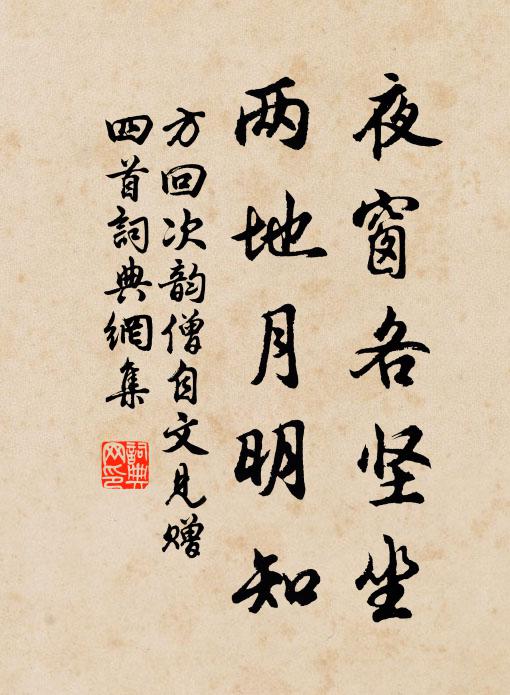 夜窗各坚坐
两地月明知
方回次韵僧自文见赠
四首詞典網集
詞典
网印